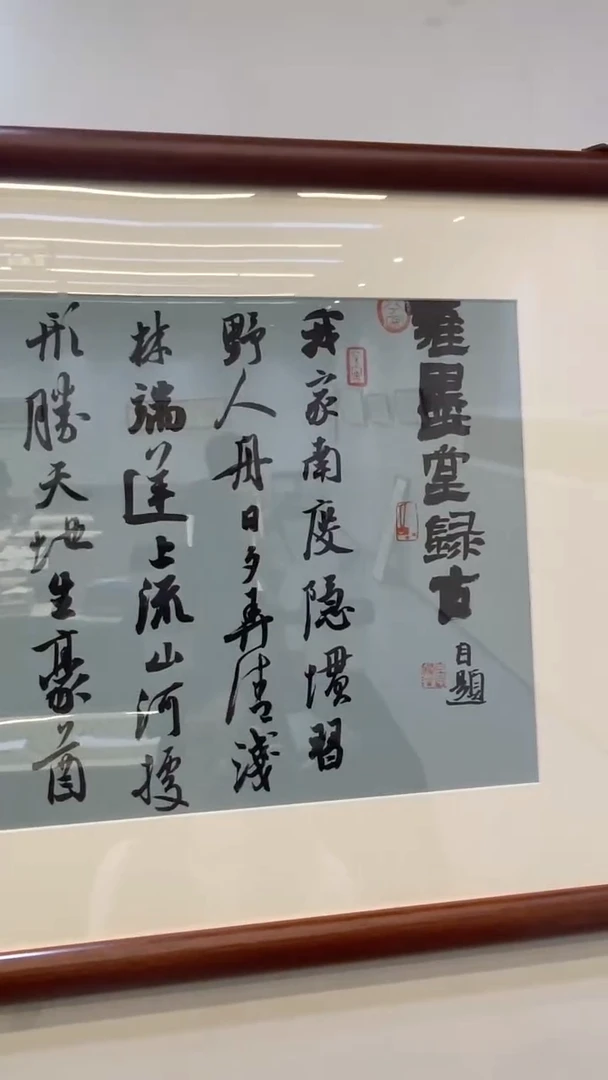 雅墨堂録古
自題
我家南度隐慣習
野人舟日夕弄清淺
林端逆上流山河據
形勝天地生豪酋